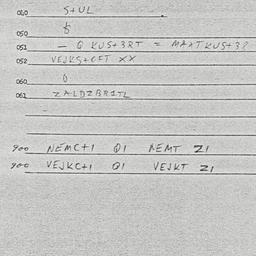 040 S+UL
050 &
051 - Q KUS+3RT = MAXTKUS+3?
052 VEJKS+CFT XX
060 0
061 ZALDZBR1TL
900 NEMC+1 Q1 NEMT Z1
900 VEJKC+1 Q1 VEJKT Z1